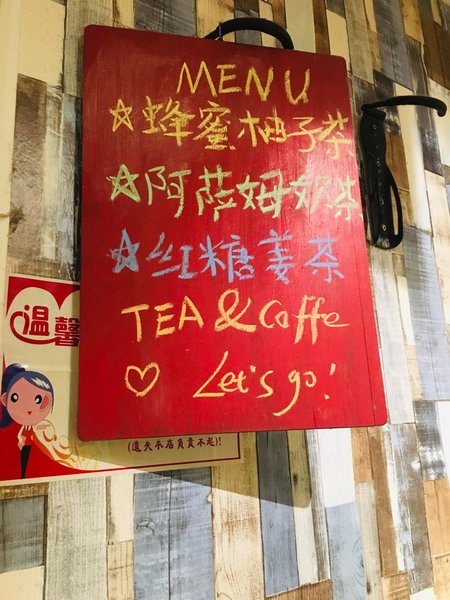 MENU
☆蜂蜜柚子茶
☆阿薩姆奶茶
☆红糖姜茶
TEA & Coffe
♡ Let's go!
溫馨
(遺失本店負責不起)!